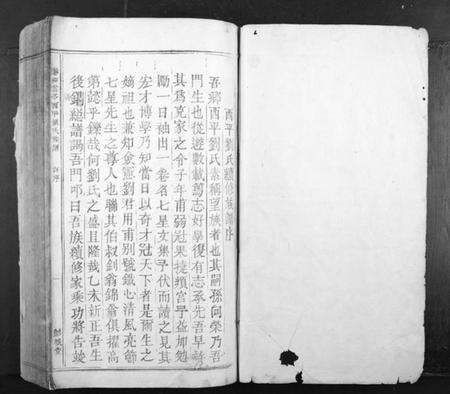 酉平劉氏續修族譜序
吾鄉酉平劉氏素稱望族者也其嗣孫向榮乃吾
門生也從遊數載篤志好學復有志承先吾早奇
其爲克家之令子年甫弱冠果捷黌宮予益加勉
勵一日袖出一卷名七星文集予伏而讀之見其
宏才博學乃知當日以奇才冠天下者是爾生之
嫡祖也兼知僉憲劉君用甫別號鐵心清風亮節
七星先生之尊人也聯其伯叔釗翁錦翁俱擢高
第懿乎鑠哉何劉氏之盛且隆哉乙未新正吾生
後鋼總譜謁吾門叩曰吾族續修家乘功將告竣